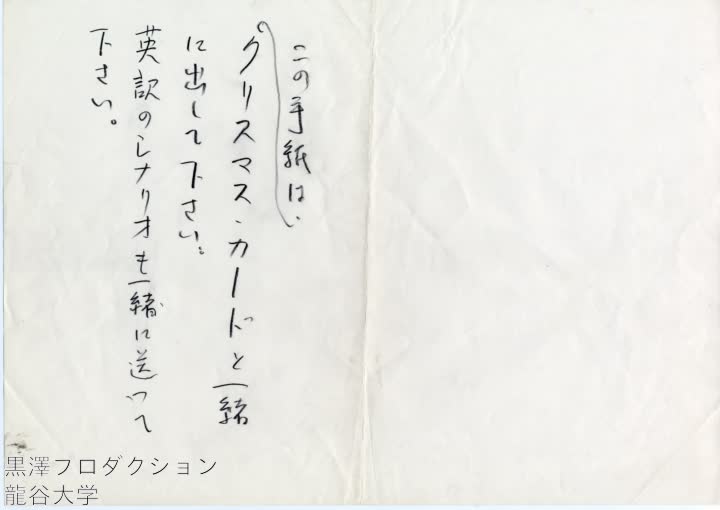 この手紙は、
クリスマス・カードと一緒
に出して下さい。
英訳のシナリオも一緒に送って
下さい。
黒澤プロダクション
龍谷大学